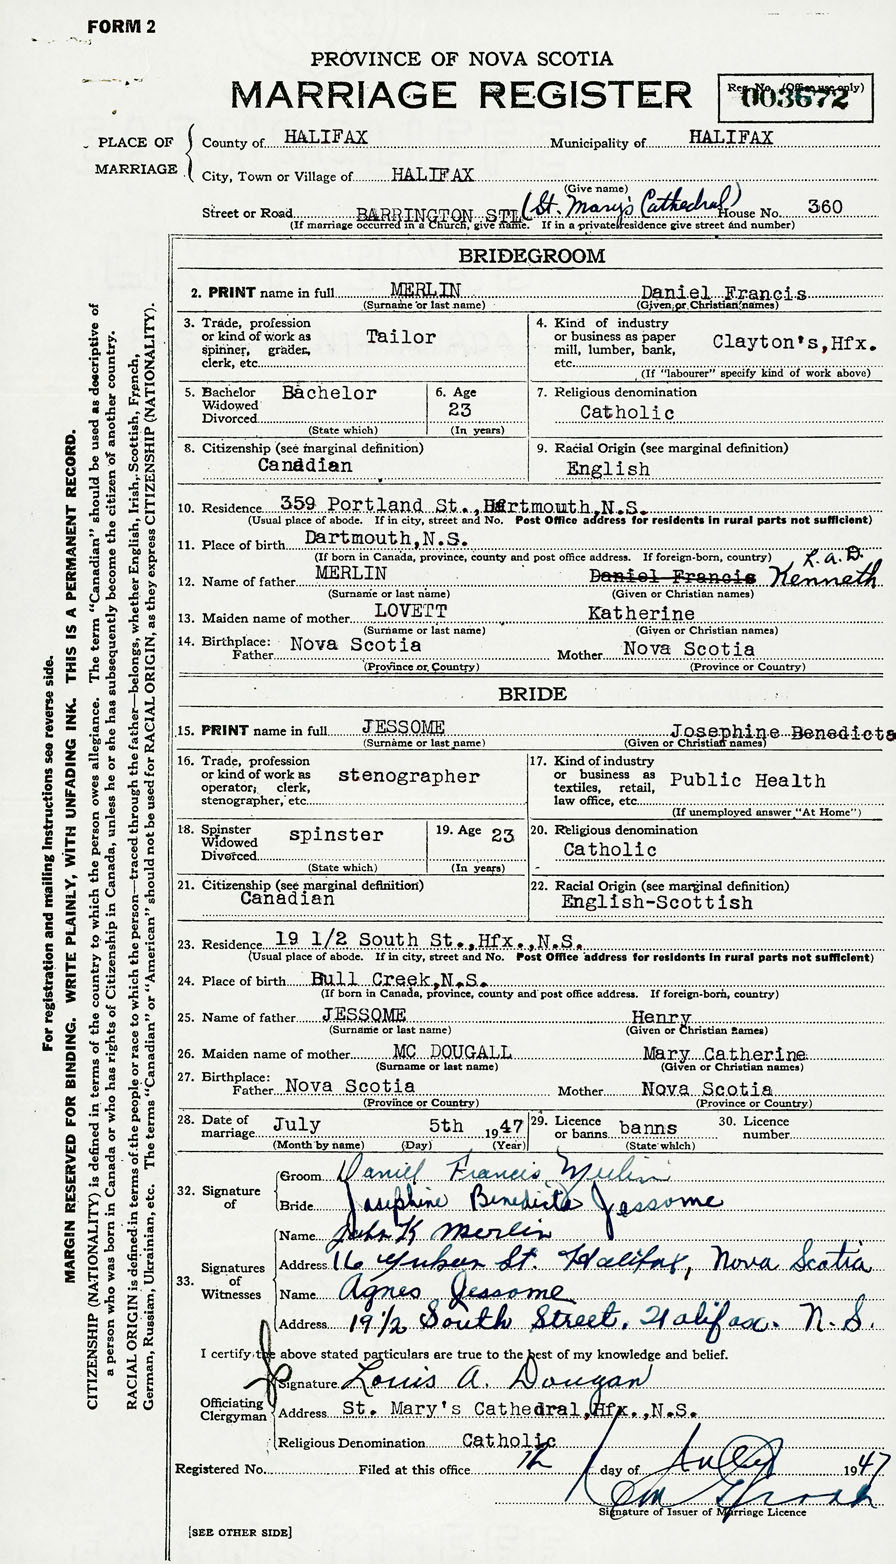 FORM 2
PROVINCE OF NOVA SCOTIA
MARRIAGE REGISTER
Reg. No. (Office use only)
003672
PLACE OF MARRIAGE
County of HALIFAX Municipality of HALIFAX
City, Town or Village of HALIFAX
(Give name)
Street or Road BARRINGTON ST. (St. Mary's Cathedral) House No. 360
(If marriage occurred in a Church, give name. If in a private residence give street and number)
BRIDEGROOM
2. PRINT name in full MERLIN Daniel Francis
(Surname or last name) (Given or Christian names)
3. Trade, profession or kind of work as spinner, grader, clerk, etc. Tailor
4. Kind of industry or business as paper mill, lumber, bank, etc. Clayton's,Hfx.
(If "labourer" specify kind of work above)
5. Bachelor Widowed Divorced Bachelor
(State which)
6. Age 23
(In years)
7. Religious denomination
Catholic
8. Citizenship (see marginal definition)
Canadian
9. Racial Origin (see marginal definition)
English
10. Residence 359 Portland St.,Dartmouth,N.S.
(Usual place of abode. If in city, street and No. Post Office address for residents in rural parts not sufficient)
11. Place of birth Dartmouth,N.S.
(If born in Canada, province, county and post office address. If foreign-born, country)
L.A.D.
12. Name of father MERLIN Daniel Francis Kenneth
(Surname or last name) (Given or Christian names)
13. Maiden name of mother LOVETT Katherine
(Surname or last name) (Given or Christian names)
14. Birthplace: Father Nova Scotia Mother Nova Scotia
(Province or Country) (Province or Country)
BRIDE
15. PRINT name in full JESSOME Josephine Benedicta
(Surname or last name) (Given or Christian names)
16. Trade, profession or kind of work as operator, clerk, stenographer, etc. stenographer
17. Kind of industry or business as textiles, retail, law office, etc. Public Health
(If unemployed answer "At Home")
18. Spinster Widowed Divorced spinster
(State which)
19. Age 23
(In years)
20. Religious denomination
Catholic
21. Citizenship (see marginal definition)
Canadian
22. Racial Origin (see marginal definition)
English-Scottish
23. Residence 19 1/2 South St.,Hfx.,N.S.
(Usual place of abode. If in city, street and No. Post Office address for residents in rural parts not sufficient)
24. Place of birth Bull Creek,N.S.
(If born in Canada, province, county and post office address. If foreign-born, country)
25. Name of father JESSOME Henry
(Surname or last name) (Given or Christian names)
26. Maiden name of mother MC DOUGALL Mary Catherine
(Surname or last name) (Given or Christian names)
27. Birthplace: Father Nova Scotia Mother Nova Scotia
(Province or Country) (Province or Country)
28. Date of marriage July 5th 1947
(Month by name) (Day) (Year)
29. Licence or banns banns
(State which)
30. Licence number
32. Signature of
Groom Daniel Francis Merlin
Bride Josephine Benedicta Jessome
33. Signatures of Witnesses
Name John K Merlin
Address 16 Yukon St. Halifax, Nova Scotia
Name Agnes Jessome
Address 19 1/2 South Street, Halifax. N.S.
I certify the above stated particulars are true to the best of my knowledge and belief.
Officiating Clergyman
Signature Louis A. Dougan
Address St. Mary's Cathedral,Hfx.,N.S.
Religious Denomination Catholic
Registered No. Filed at this office 12 day of July 1947
Signature of Issuer of Marriage Licence
[SEE OTHER SIDE]
For registration and mailing instructions see reverse side.
MARGIN RESERVED FOR BINDING. WRITE PLAINLY, WITH UNFADING INK. THIS IS A PERMANENT RECORD.
CITIZENSHIP (NATIONALITY) is defined in terms of the country to which the person owes allegiance. The term "Canadian" should be used as descriptive of
a person who was born in Canada or who has rights of Citizenship in Canada, unless he or she has subsequently become the citizen of another country.
RACIAL ORIGIN is defined in terms of the people or race to which the person—traced through the father—belongs, whether English, Irish, Scottish, French,
German, Russian, Ukrainian, etc. The terms "Canadian" or "American" should not be used for RACIAL ORIGIN, as they express CITIZENSHIP (NATIONALITY).